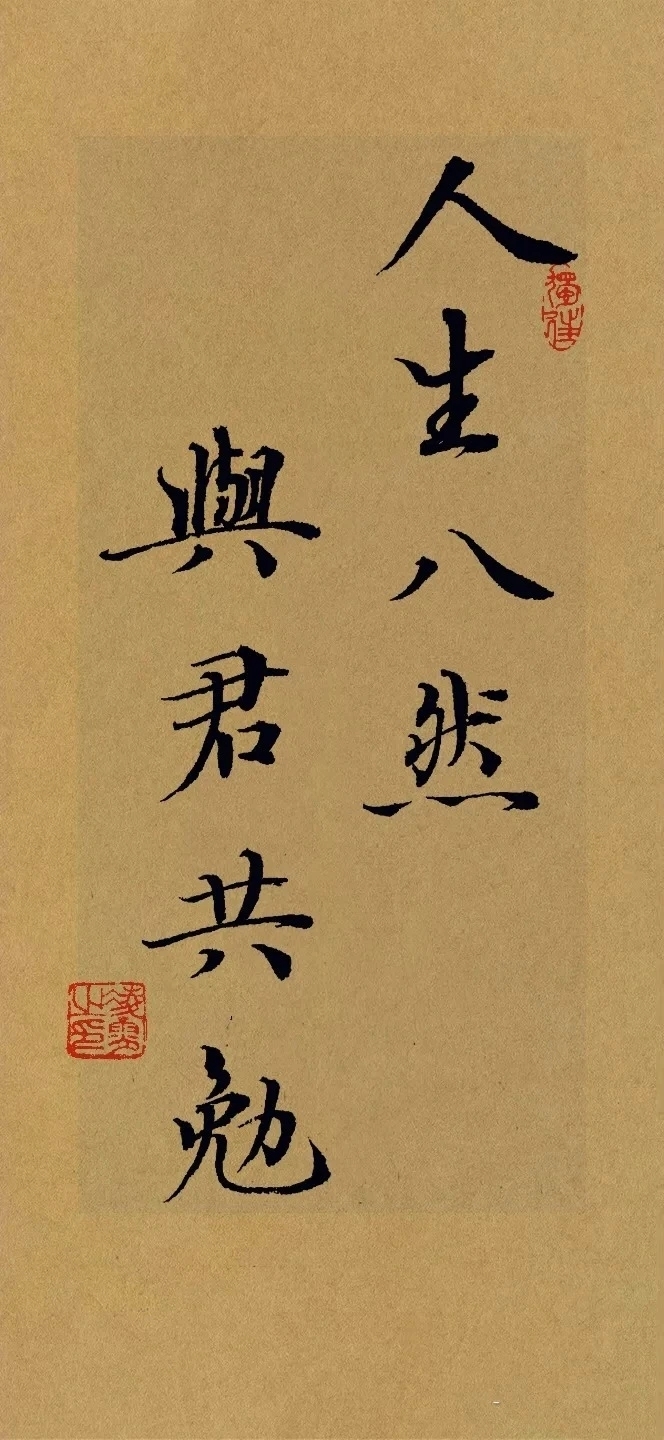 人生八然
與君共勉
獨佳